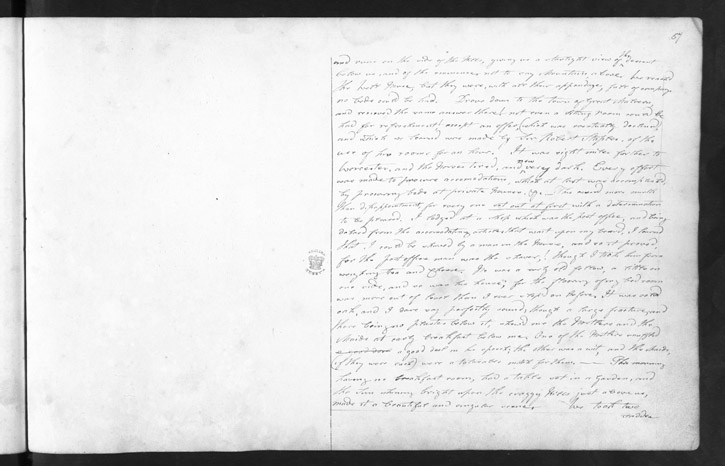 57
and runs on the side of the Hill, giving us a straight view of the descent
below us, and of the eminence, not to say Mountain above, we reached
the best House, but they were, with all their appendages, full of company
no beds could be had. Drove down to the town of Great Malvern,
and received the same answer there, not even a sitting room could be
had for refreshment except an offer, which was eventually declined
and which we found was made by Sir Robert of the
use of his rooms for an hour. It was eight miles further to
Worcester, and the Horses tired, and now very dark. Every effort
was made to procure accomodation, which at last was accomplished,
by procuring beds at private houses, &c. This caused more mirth
than disappointment, for every one set out at first with a determination
to be pleased. I lodged at a shop which was the post office, and being
debarred from the accomodating that wait upon my beard, I found
that I could be shaved by a man in the House, and so it proved,
for the post office man was the shaver, though I took him from
weighing tea and cheese. He was a very old fellow, a little on
one side, and so was his house; for the flooring of my bed room
was more out of level than I ever slept on before. It was old
oak, and I dare say perfectly sound, though a large fracture, and
there being no plaister below it, shewed me the Mother and the
maids at early breakfast below me. One of the Mother's
a good deal in the spout; the other was a nut, and the maids,
(if they were so) were a tolerable match for them. This morning
having no breakfast room, had a table set in a garden, and
the Sun shining bright upon the craggy Hills just above us,
made it a beautiful and singular scene. We took two